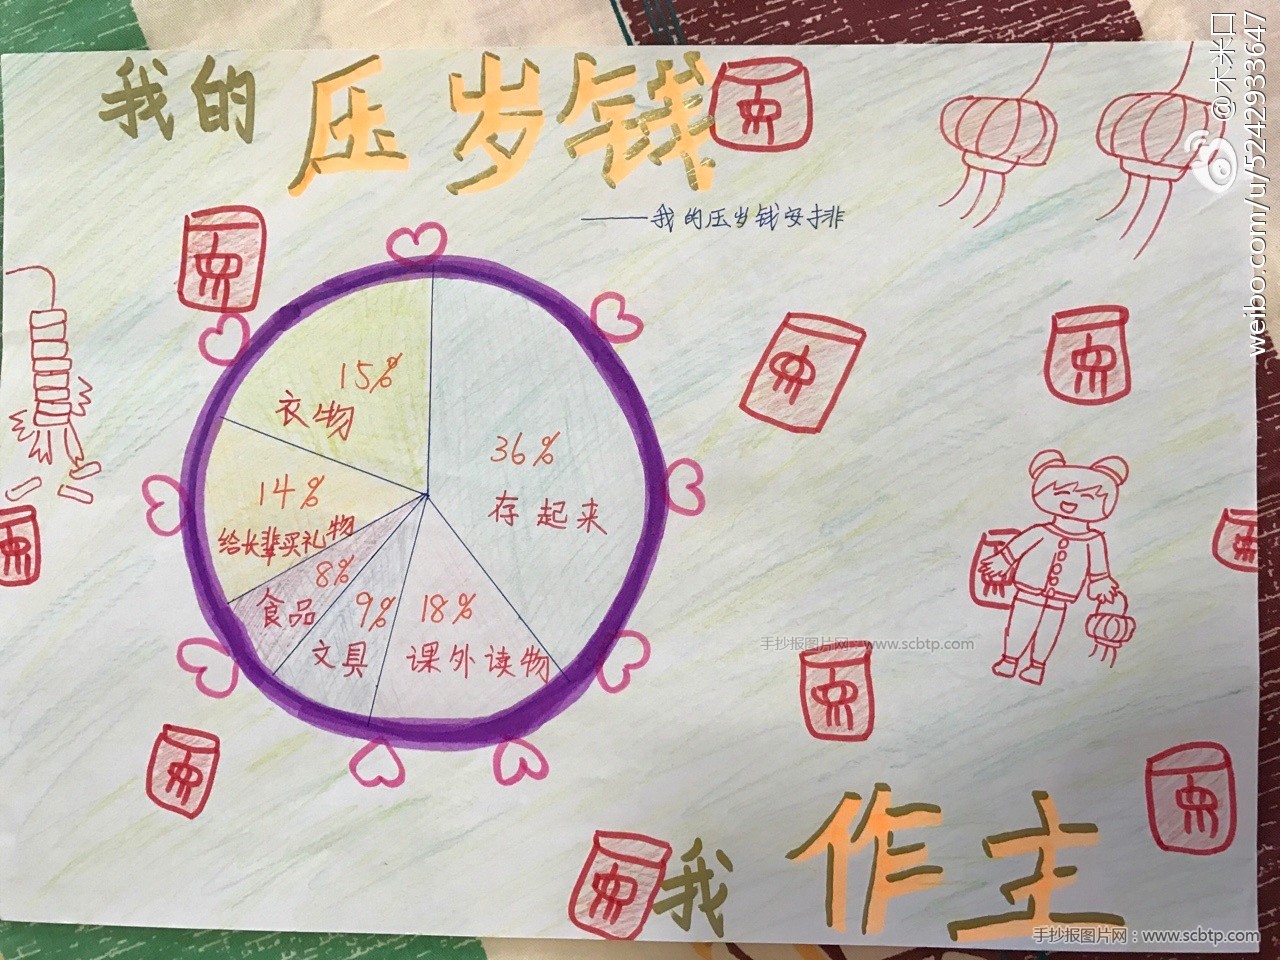 我的压岁钱
——我的压岁钱安排
15%
衣物
36%
存起来
14%
给长辈买礼物
8%
食品
9%
文具
18%
课外读物
我作主
@木米口
weibo.com/u/5242933647
手抄报图片网：www.scbtp.com
手抄报图片网：www.scbtp.com